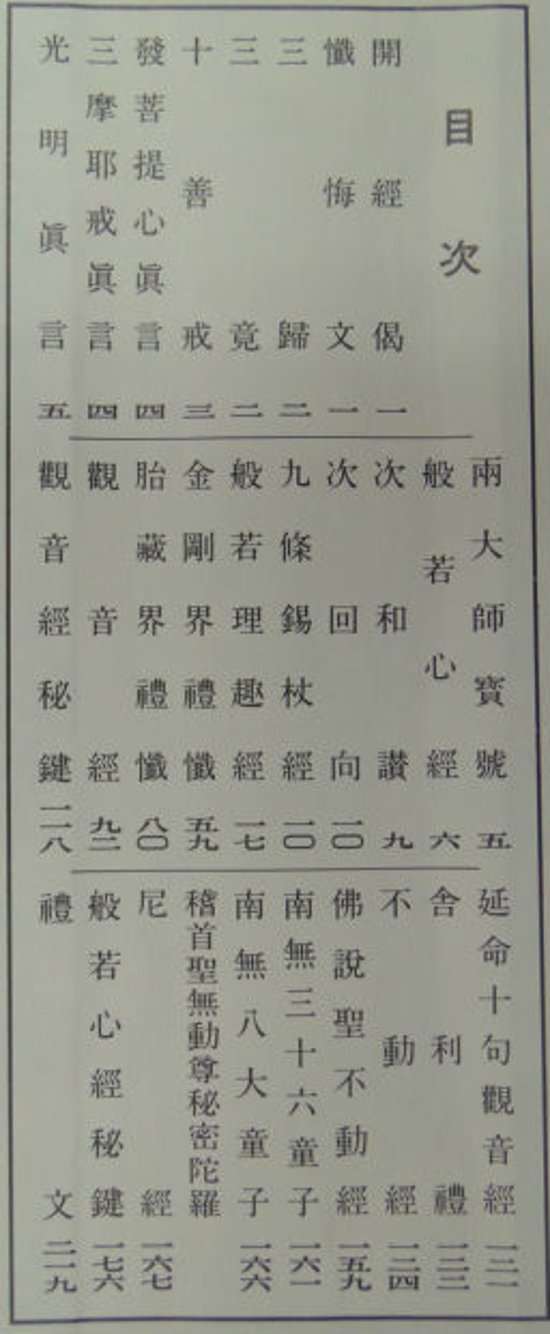 目次
開經偈 一
懺悔文 一
三歸 二
三竟 二
十善戒 三
發菩提心眞言 四
三摩耶戒眞言 四
光明眞言 五
兩大師寶號 五
般若心經 六
次和讃 九
次回向 一〇
九條錫杖經 一〇
般若理趣經 一七
金剛界禮懺 五九
胎藏界禮懺 八〇
觀音經 九二
觀音經秘鍵 一一八
延命十句觀音經 一三一
舍利禮 一三三
不動經 一三四
佛說聖不動經 一五九
南無三十六童子 一六一
南無八大童子 一六六
稽首聖無動尊秘密陀羅
尼經 一六七
般若心經秘鍵 一七六
禮文 二一九